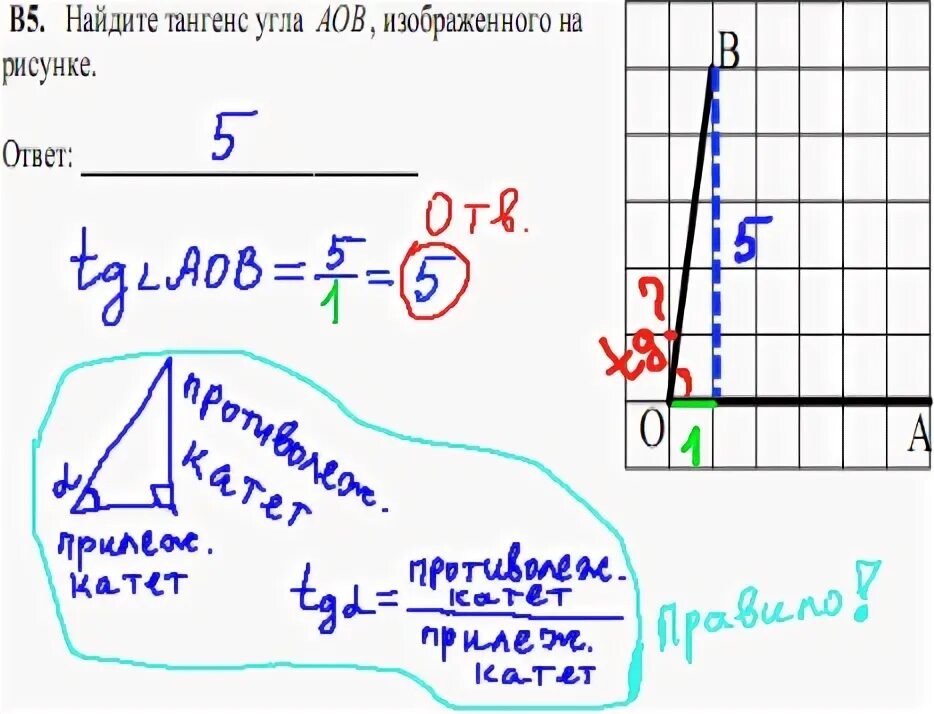 В5. Найдите тангенс угла АОВ, изображенного на
рисунке.
Ответ: 5
Отв.
tg∠AOB = 5/1 = 5
противолеж.
катет
α
прилеж.
катет
tgα = противолеж. катет / прилеж. катет
правило!
B
5
?
tg
?
O
1
A